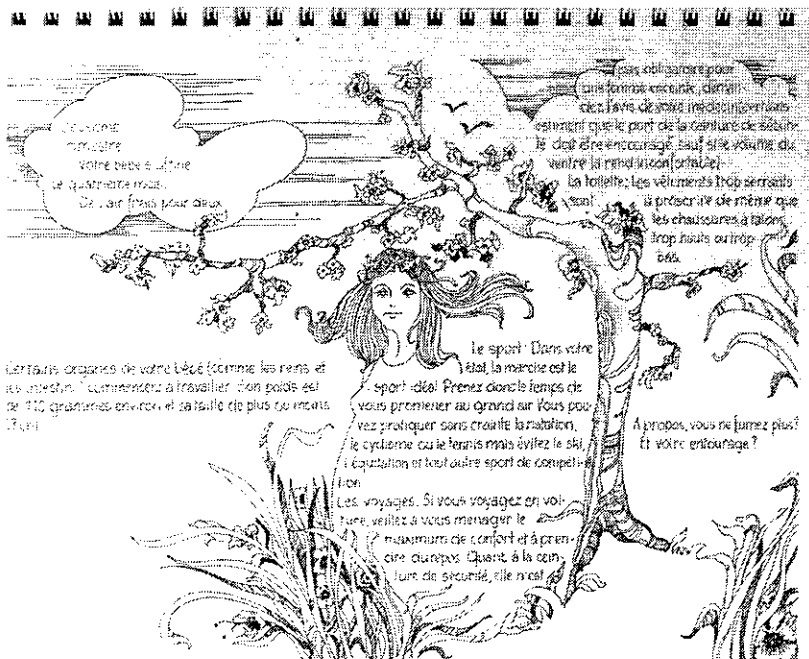 semaine
Votre bébé a
Le quatrième mois.
De l'air frais pour deux
Certains organes de votre bébé (comme les reins et
les intestins) commencent à travailler. Son poids est
de 110 grammes environ et sa taille de plus ou moins
cm
Le sport: Dans votre
état, la marche est le
sport idéal. Prenez donc le temps de
vous promener au grand air. Vous pou-
vez pratiquer sans crainte la natation,
le cyclisme ou le tennis mais évitez le ski,
l'équitation et tout autre sport de compéti-
tion
Les voyages. Si vous voyagez en voi-
ture, veillez à vous ménager le
maximum de confort et à pren-
dre du repos. Quant à la cein-
ture de sécurité, elle n'est
pas obligatoire pour
une femme enceinte,
l'avis de votre médecin
estiment que le port de la ceinture de sécurité
doit être encouragé, sauf si le volume du
ventre la rend inconfortable.
La toilette: Les vêtements trop serrants
sont à proscrire de même que
les chaussures à talons
trop hauts ou trop
bas.
A propos, vous ne fumez plus?
Et votre entourage?